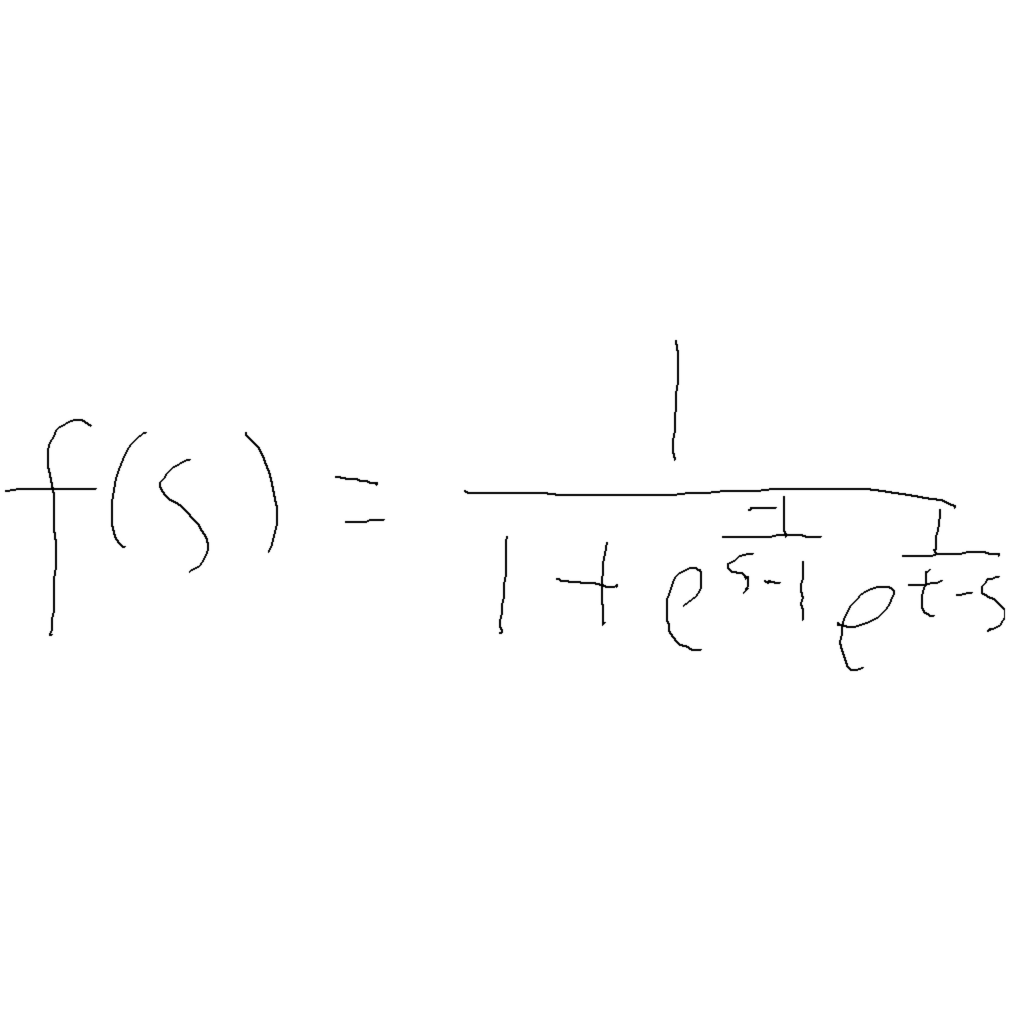 f(s) = \frac{1}{1 + e^{\frac{-1}{s-1}} e^{\frac{1}{t-s}}}